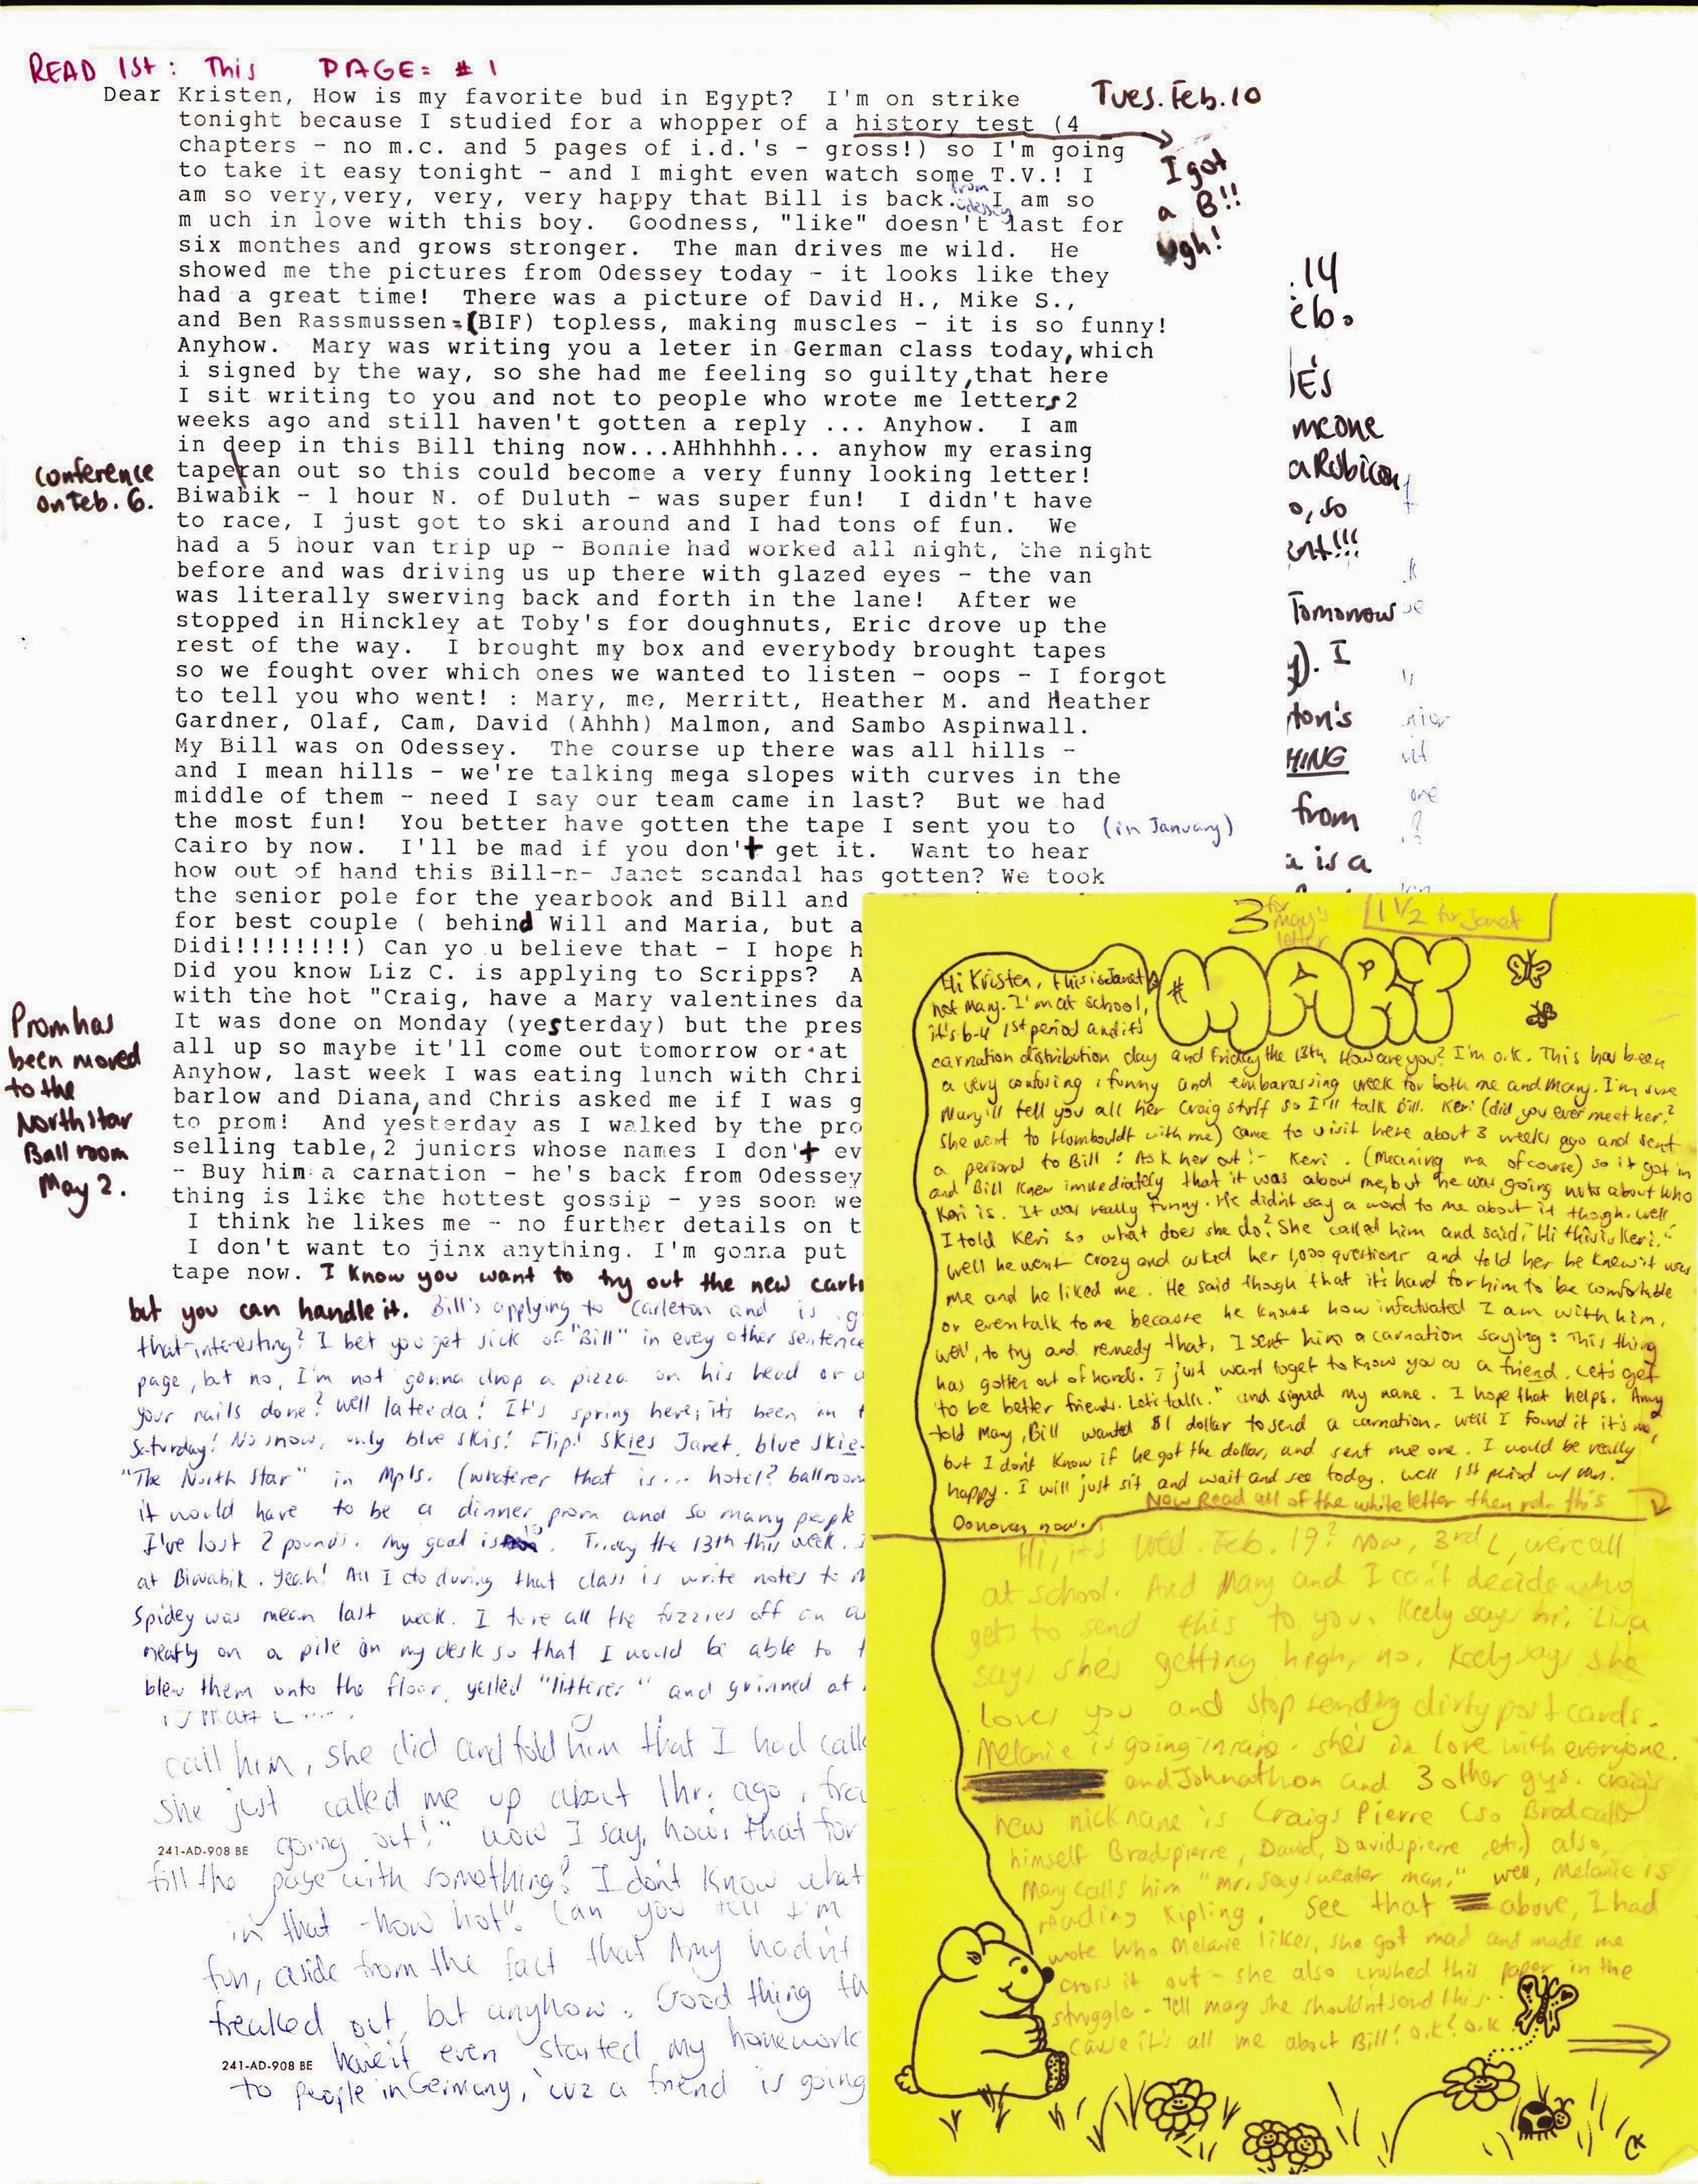 READ 1st: This PAGE= #1
Tues. Feb. 10
Dear Kristen, How is my favorite bud in Egypt? I'm on strike
tonight because I studied for a whopper of a history test (4
chapters - no m.c. and 5 pages of i.d.'s - gross!) so I'm going
to take it easy tonight - and I might even watch some T.V.! I
am so very,very, very, very happy that Bill is back. from Odessey I am so
m uch in love with this boy. Goodness, "like" doesn't last for
six monthes and grows stronger. The man drives me wild. He
showed me the pictures from Odessey today - it looks like they
had a great time! There was a picture of David H., Mike S.,
and Ben Rassmussen=(BIF) topless, making muscles - it is so funny!
Anyhow. Mary was writing you a leter in German class today,which
i signed by the way, so she had me feeling so guilty,that here
I sit writing to you and not to people who wrote me letters 2
weeks ago and still haven't gotten a reply ... Anyhow. I am
in deep in this Bill thing now...AHhhhhh... anyhow my erasing
tape ran out so this could become a very funny looking letter!
Biwabik - 1 hour N. of Duluth - was super fun! I didn't have
to race, I just got to ski around and I had tons of fun. We
had a 5 hour van trip up - Bonnie had worked all night, the night
before and was driving us up there with glazed eyes - the van
was literally swerving back and forth in the lane! After we
stopped in Hinckley at Toby's for doughnuts, Eric drove up the
rest of the way. I brought my box and everybody brought tapes
so we fought over which ones we wanted to listen - oops - I forgot
to tell you who went! : Mary, me, Merritt, Heather M. and Heather
Gardner, Olaf, Cam, David (Ahhh) Malmon, and Sambo Aspinwall.
My Bill was on Odessey. The course up there was all hills -
and I mean hills - we're talking mega slopes with curves in the
middle of them - need I say our team came in last? But we had
the most fun! You better have gotten the tape I sent you to (in January)
Cairo by now. I'll be mad if you don't get it. Want to hear
how out of hand this Bill-n- Janet scandal has gotten? We took
the senior pole for the yearbook and Bill and
for best couple ( behind Will and Maria, but a
Didi!!!!!!!!) Can yo u believe that - I hope h
Did you know Liz C. is applying to Scripps? A
with the hot "Craig, have a Mary valentines da
It was done on Monday (yesterday) but the pres
all up so maybe it'll come out tomorrow or at
Anyhow, last week I was eating lunch with Chri
barlow and Diana,and Chris asked me if I was g
to prom! And yesterday as I walked by the pro
selling table,2 juniors whose names I don't ev
- Buy him a carnation - he's back from Odessey
thing is like the hottest gossip - yes soon we
I think he likes me - no further details on t
I don't want to jinx anything. I'm gonna put
tape now. I know you want to try out the new cart
but you can handle it. Bill's applying to Carleton and is g
that interesting? I bet you get sick of "Bill" in every other sentence
page, but no, I'm not gonna drop a pizza on his head or a
your nails done? Well lateeda! It's spring here; it's been in t
Saturday! No snow, only blue skis! Flip! skies Janet, blue skie
"The North Star" in Mpls. (whatever that is... hotel? ballroom
it would have to be a dinner prom and so many people
I've lost 2 pounds. My goal is 10. Friday the 13th this week. I
at Biwabik. Yeah! All I do during that class is write notes to m
Spidey was mean last week. I tore all the fuzzies off
neatly on a pile on my desk so that I would be able to t
blew them onto the floor, yelled "litterer" and grinned at
call him, she did and told him that I had calle
she just called me up about 1hr. ago,
going out!" wow I say, how's that for
241-AD-908 BE
fill the page with something? I don't know what
in that - how hot". Can you tell I'm
fun, aside from the fact that Amy hadn't
freaked out, but anyhow. Good thing th
haven't even started my homework
241-AD-908 BE
to people in Germany, 'cuz a friend is going
I got
a B!!
ugh!
conference
on Feb. 6.
Prom has
been moved
to the
North star
Ball room
May 2.
.14
eb.
E's
meone
a Rubicon
o, so
ent!!!
Tomorrow
y). I
ton's
HING
from
a is a
3 for Mary's letter
1 1/2 for Janet
MARY
Hi Kristen, this is Janet
not Mary. I'm at school,
it's b-4 1st period and it's
carnation distribution day and Friday the 13th. How are you? I'm o.k. This has been
a very confusing, funny and embarassing week for both me and Mary. I'm sure
Mary'll tell you all her Craig stuff so I'll talk Bill. Keri (did you ever meet her?
She went to Hombouldt with me) came to visit here about 3 weeks ago and sent
a personal to Bill: Ask her out! - Keri. (Meaning me of course) so it got in
and Bill knew immediately that it was about me, but he was going nuts about who
Keri is. It was really funny. He didn't say a word to me about it though. Well
I told Keri so what does she do? She called him and said, "Hi this is Keri."
Well he went crazy and asked her 1,000 questions and told her he knew it was
me and he liked me. He said though that it's hard for him to be comfortable
or even talk to me because he knows how infatuated I am with him.
Well, to try and remedy that, I sent him a carnation saying: "This thing
has gotten out of hands. I just want to get to know you as a friend. Let's get
to be better friends. Let's talk." and signed my name. I hope that helps. Amy
told Mary, Bill wanted $1 dollar to send a carnation. Well I found it it's me,
but I don't know if he got the dollar, and sent me one. I would be really
happy. I will just sit and wait and see today. Well 1st period w/ Mrs.
Donovan now.
Now Read all of the white letter then read this
Hi, it's Wed. Feb. 19? Now, 3rd L, were all
at school. And Mary and I can't decide who
gets to send this to you. Keely says hi. Lisa
says she's getting high, no. Keely says she
loves you and stop sending dirty postcards.
Melanie is going insane. she's in love with everyone.
and Johnathon and 3 other guys. Craig's
new nickname is Craigs Pierre (so Brad calls
himself Bradspierre, David, Davidspierre, etc.) also,
Mary calls him "mr. say sweater man." Well, Melanie is
reading Kipling. See that above, I had
wrote who Melanie likes, she got mad and made me
cross it out - she also crushed this paper in the
struggle - Tell Mary she shouldn't send this
cause it's all me about Bill! o.k? o.k